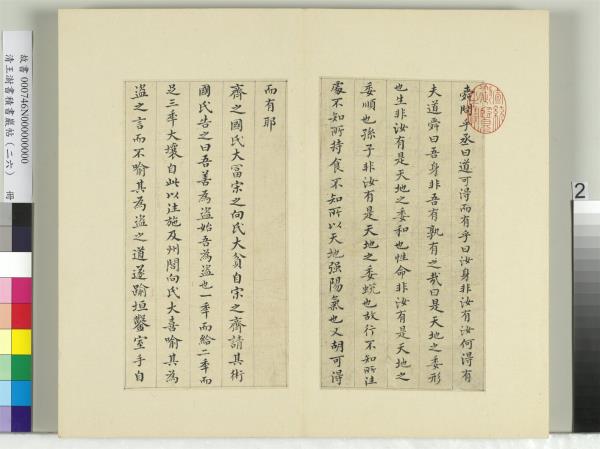 舜問乎丞曰道可得而有乎曰汝身非汝有汝何得有
夫道舜曰吾身非吾有孰有之哉曰是天地之委形
也生非汝有是天地之委和也性命非汝有是天地之
委順也孫子非汝有是天地之委蛻也故行不知所往
處不知所持食不知所以天地强陽氣也又胡可得
而有耶
齊之國氏大富宋之向氏大貧自宋之齊請其術
國氏告之曰吾善為盜始吾為盜也一年而給二年而
足三年大壤自此以往施及州閭向氏大喜喻其為
盜之言而不喻其為盜之道遂踰垣鑿室手自
故書000746N000000000
清王澍書積書巖帖(二六) 冊
2